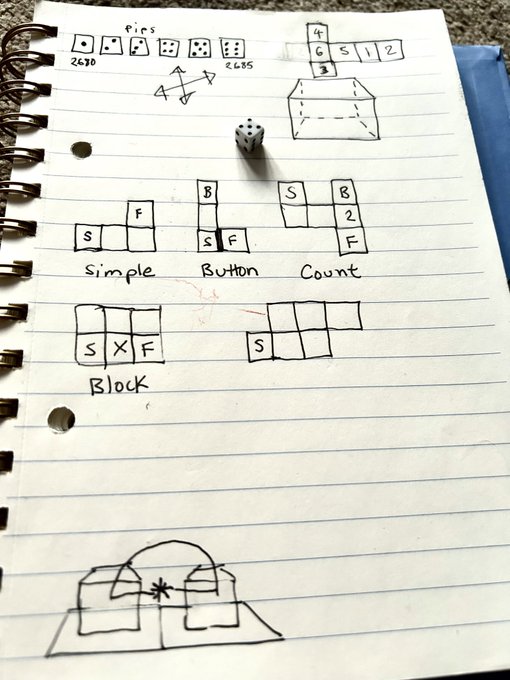 pips
2680 2685
4
6 5 1 2
3
F
S
Simple
B
S F
Button
S B
2
F
Count
S X F
Block
S